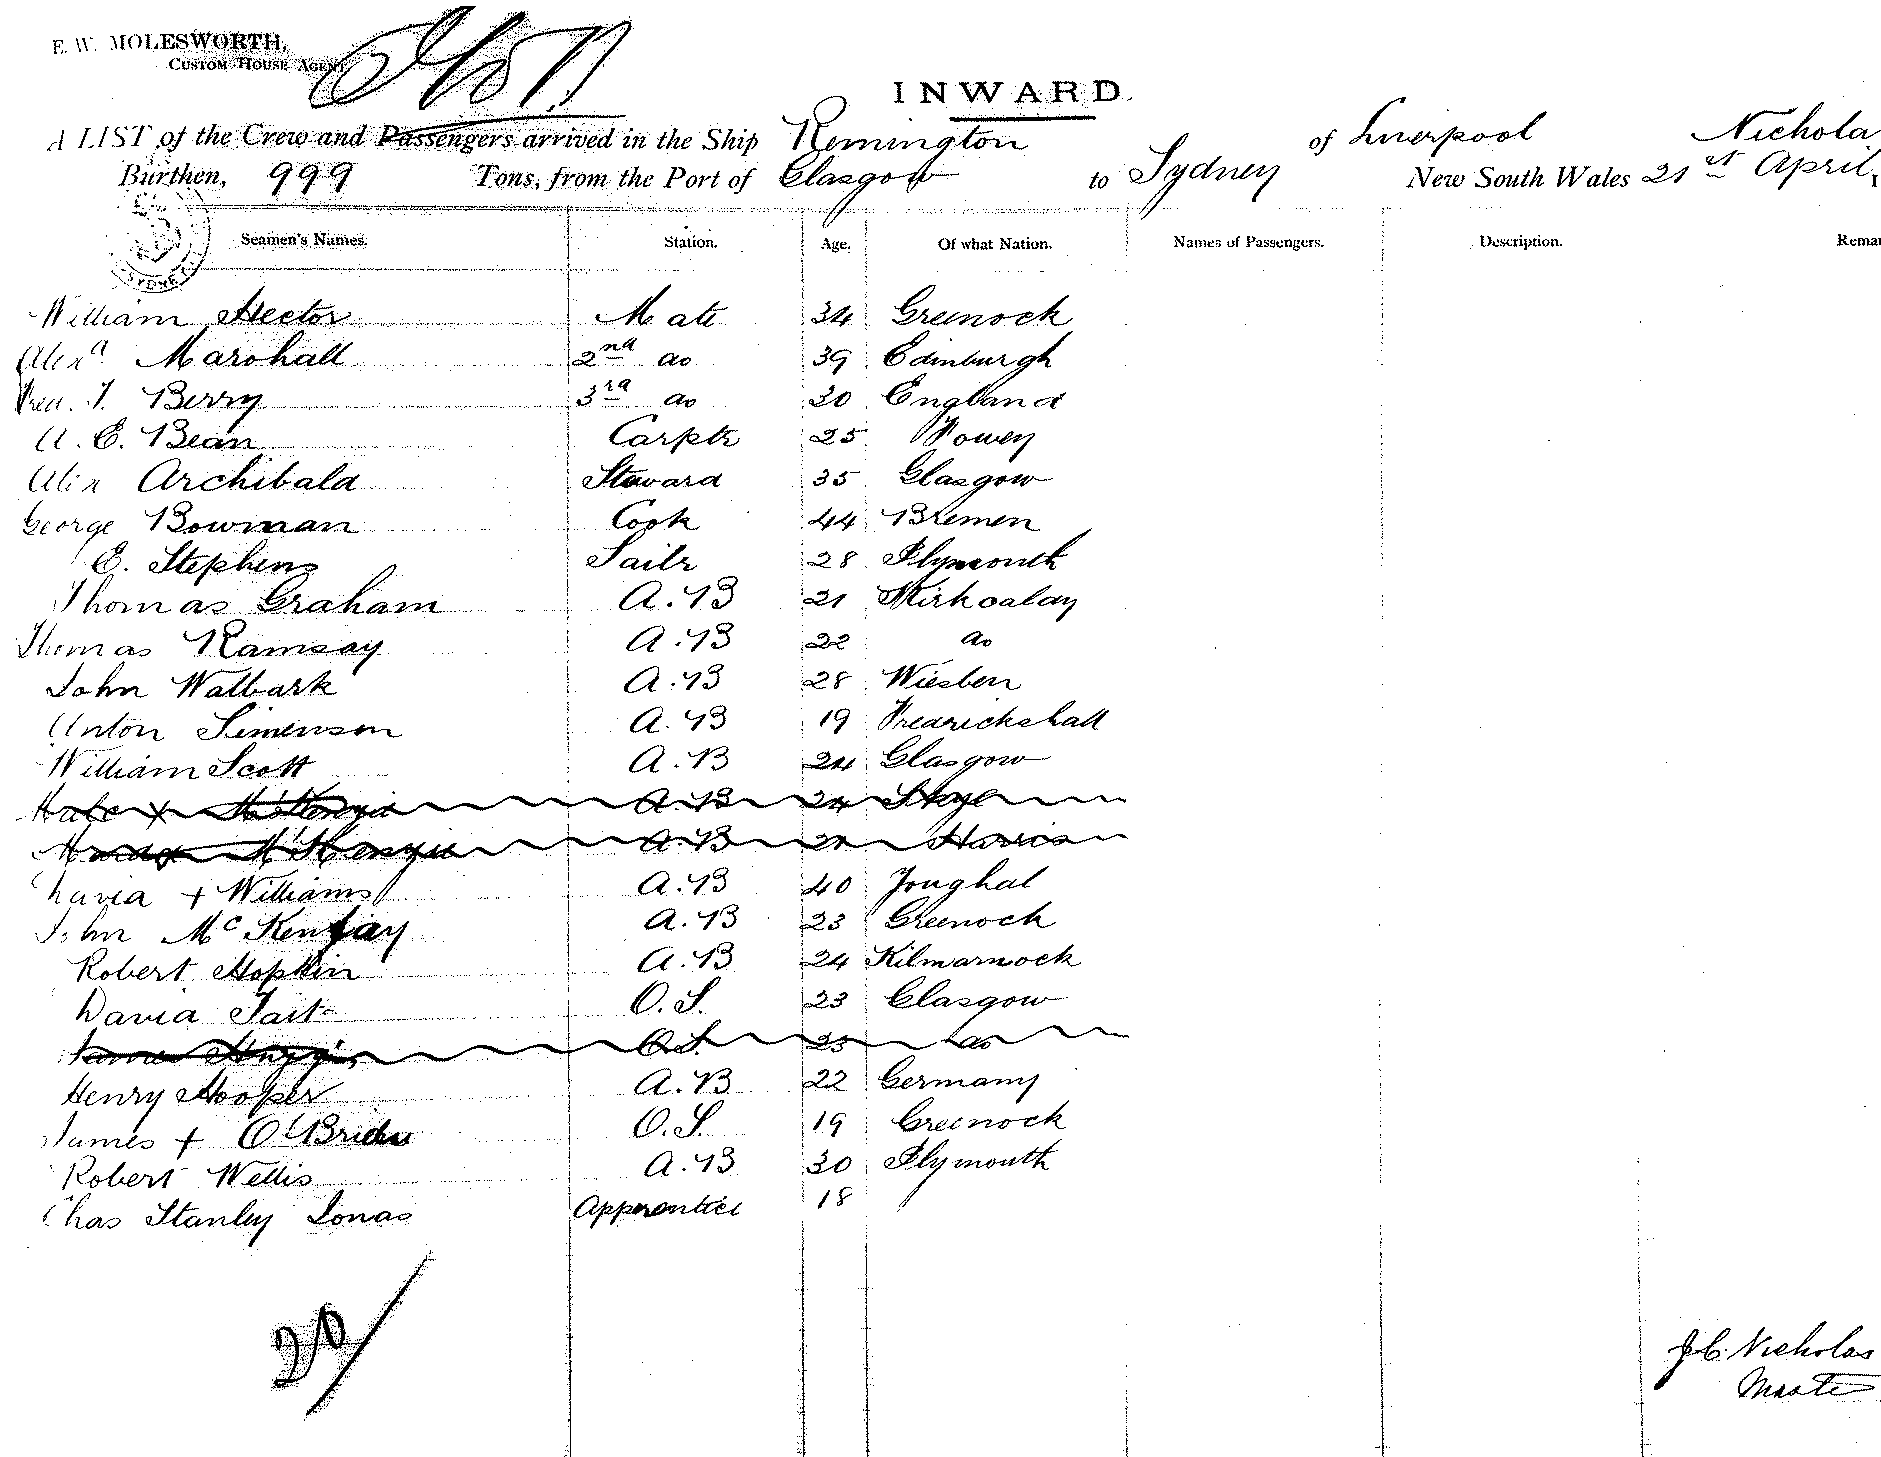 E. W. MOLESWORTH,
CUSTOM HOUSE AGENT
INWARD.
A LIST of the Crew and Passengers arrived in the Ship Remington of Liverpool Nichola
Burthen, 999 Tons, from the Port of Glasgow to Sydney New South Wales 21st April,
Seamen's Names. Station. Age. Of what Nation. Names of Passengers. Description. Rema
SYDNEY
William Hector Mate 34 Greenock
Alexr Marshall 2nd do 39 Edinburgh
Fred. T. Berry 3rd do 30 England
A. E. Bean Carptr 25 Fowey
Alex Archibald Steward 35 Glasgow
George Bowman Cook 44 Bremen
E. Stephens Sailr 28 Plymouth
Thomas Graham A.B 21 Kirkcalay
Thomas Ramsay A.B 22 do
John Wallark A.B 28 Wiesben
Anton Simenson A.B 19 Fredrickshall
William Scott A.B 24 Glasgow
x McKenzie A.B 24 Skye
McKenzie A.B Harris
David + Williams A.B 40 Youghal
John McKenfay A.B 23 Greenock
Robert Hopkin A.B 24 Kilmarnock
David Tait O.S. 23 Glasgow
James O.S. 23 do
Henry Hooper A.B 22 Germany
James + O'Brien O.S. 19 Greenock
Robert Wellis A.B 30 Plymouth
Chas Stanley Jonas Apprentice 18
20/
J C. Nicholas
Maste